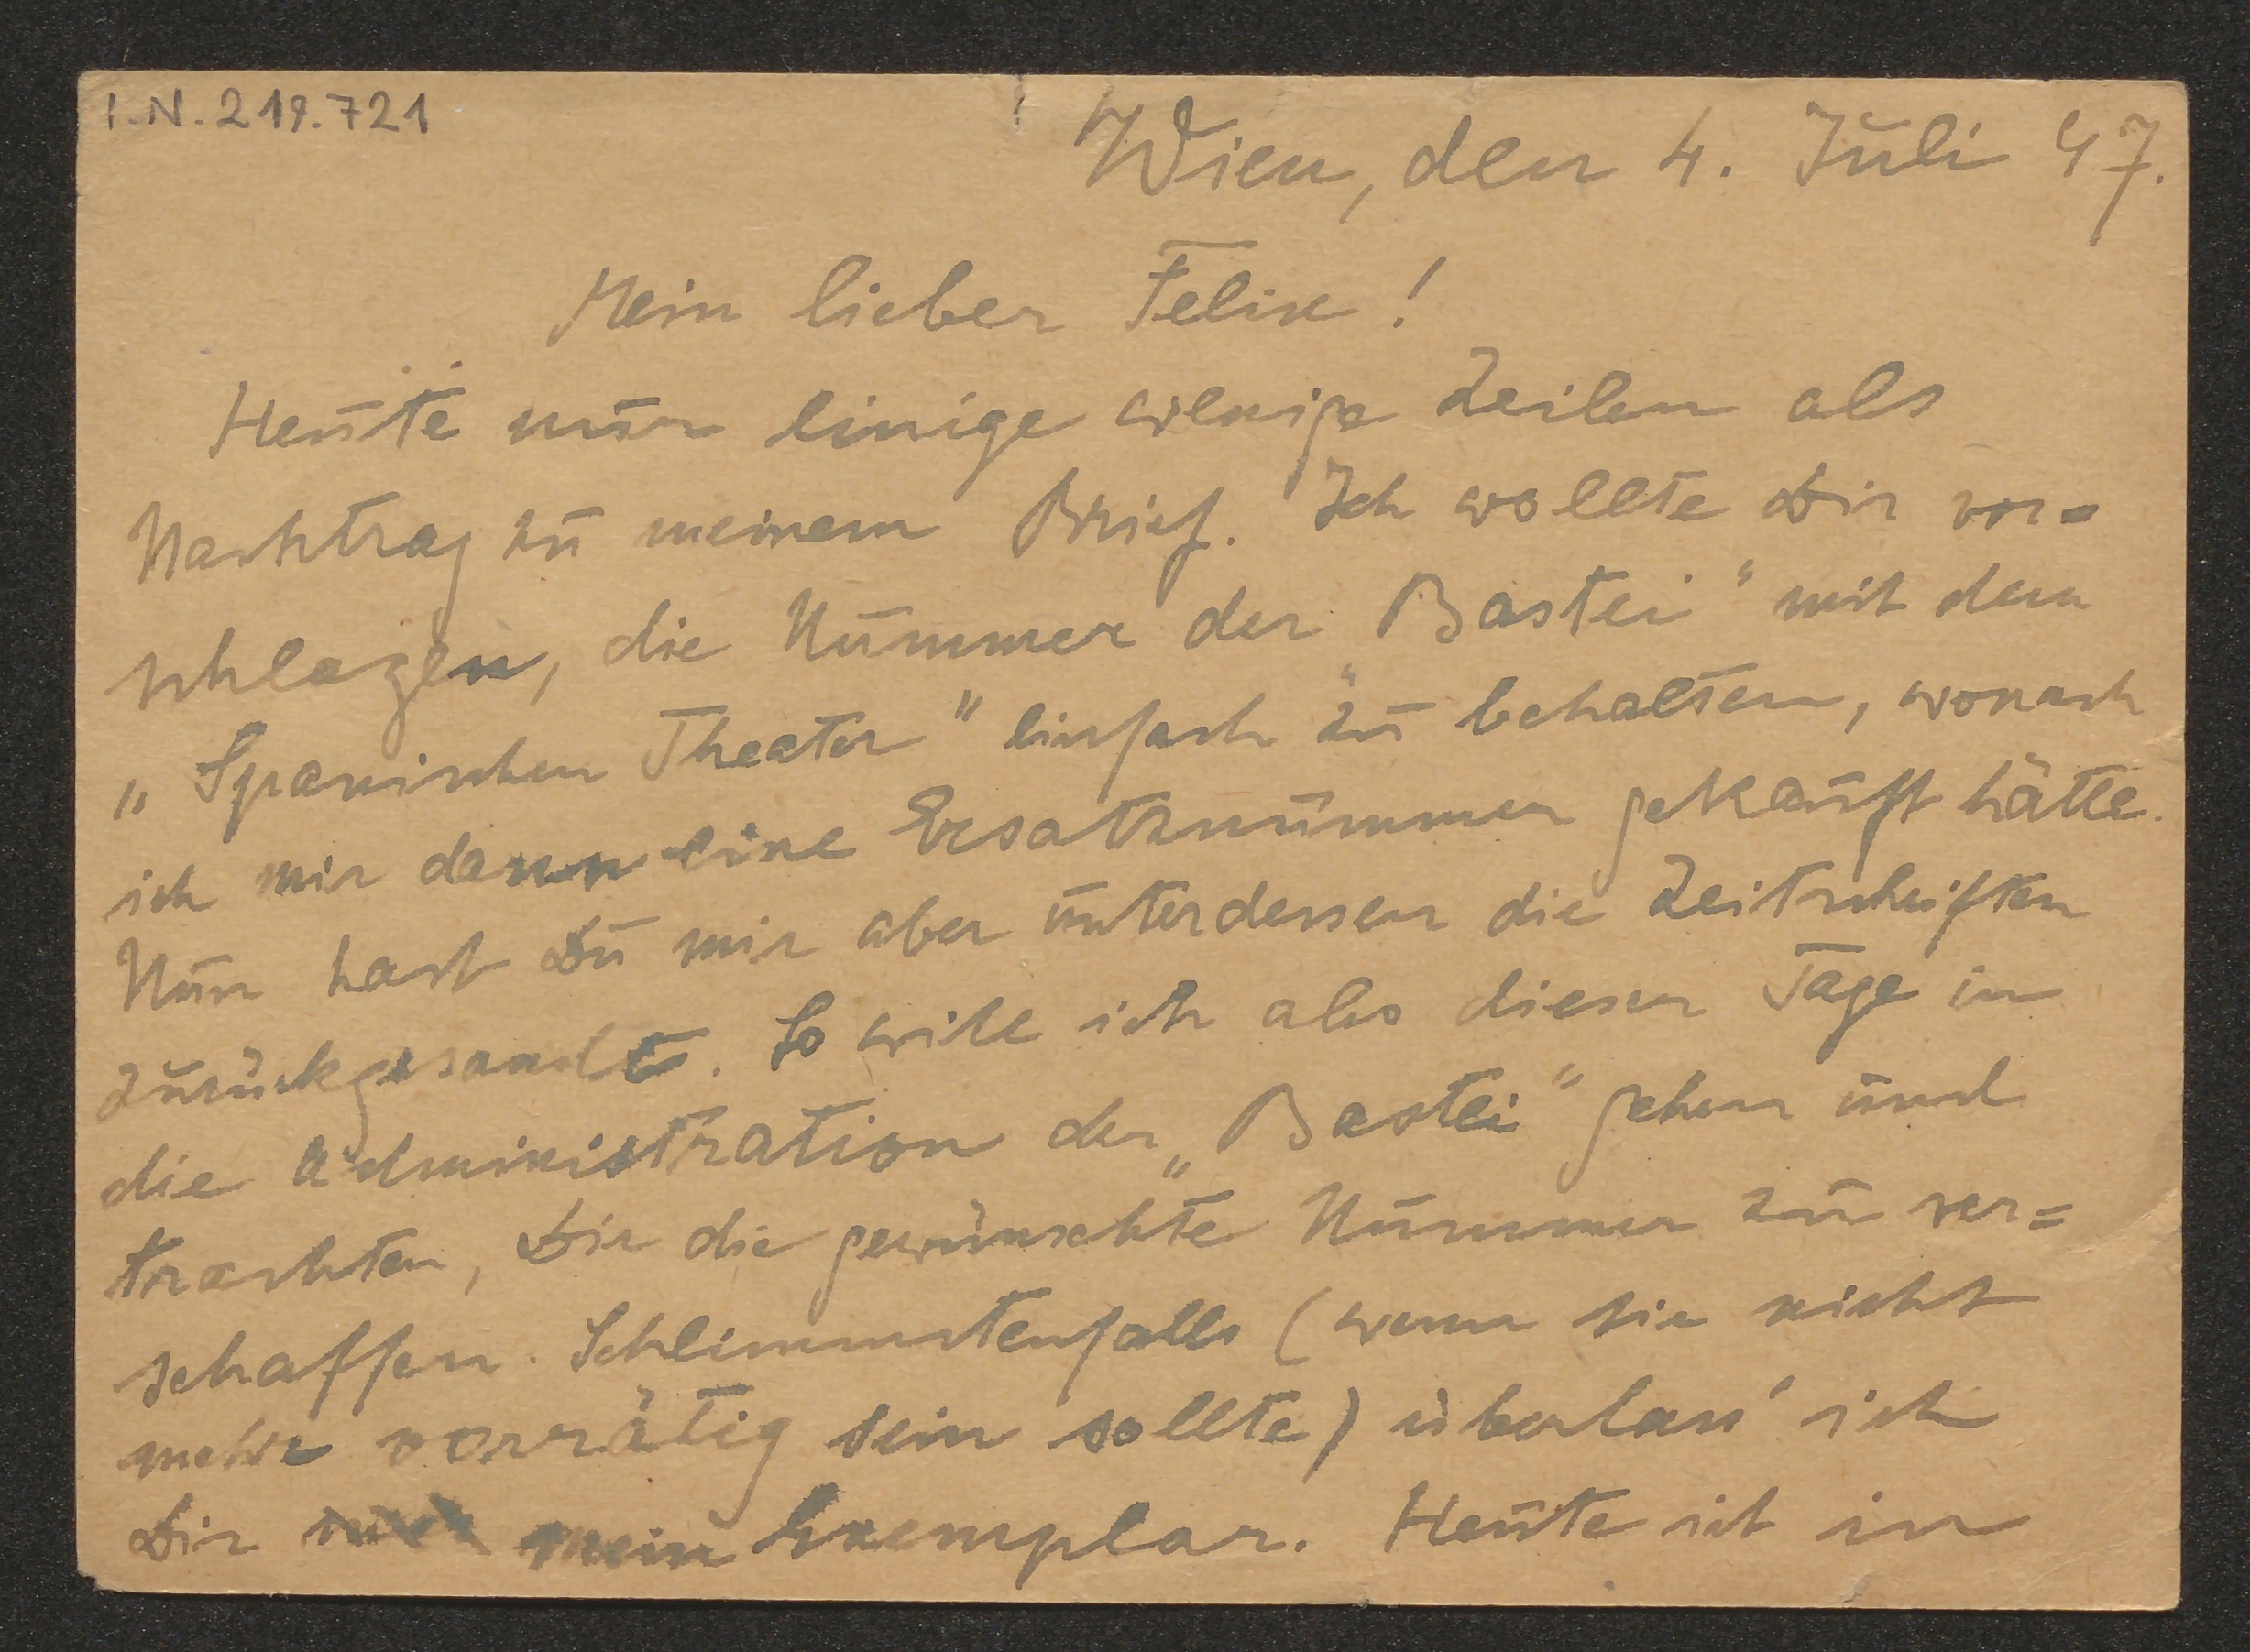 I.N. 219.721
Wien, den 4. Juli 47.
Mein lieber Felix!
Heute nur einige wenige Zeilen als
Nachtrag zu meinem Brief. Ich wollte Dir vor=
schlagen, die Nummer der „Bastei“ mit dem
„Spanischen Theater“ einfach zu behalten, wonach
ich mir dann eine Ersatznummer gekauft hätte.
Nun hast Du mir aber unterdessen die Zeitschriften
zurückgesandt. So will ich also dieser Tage in
die Administration der „Bastei“ gehen und
trachten, Dir die gewünschte Nummer zu ver=
schaffen. Schlimmstenfalls (wenn sie nicht
mehr vorrätig sein sollte) überlass' ich
Dir mein Exemplar. Heute ist in